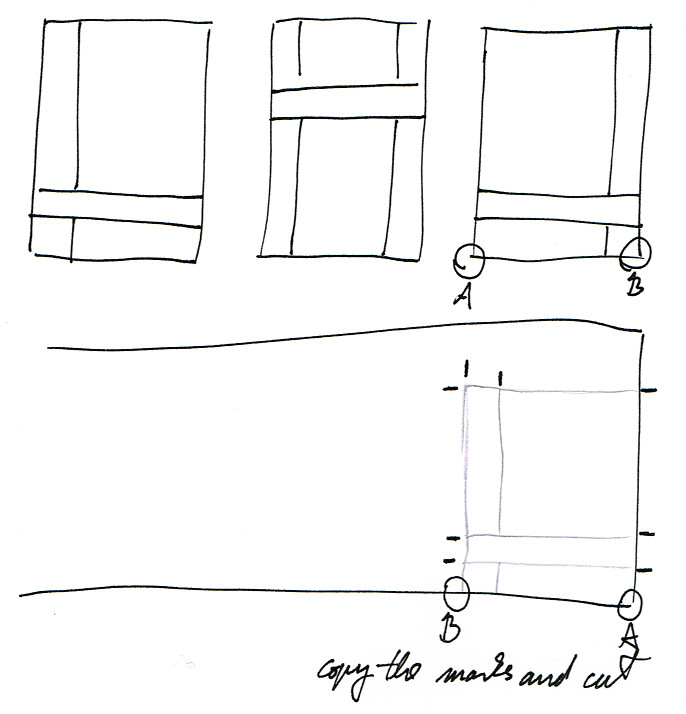 A B
B A
copy the marks and cut